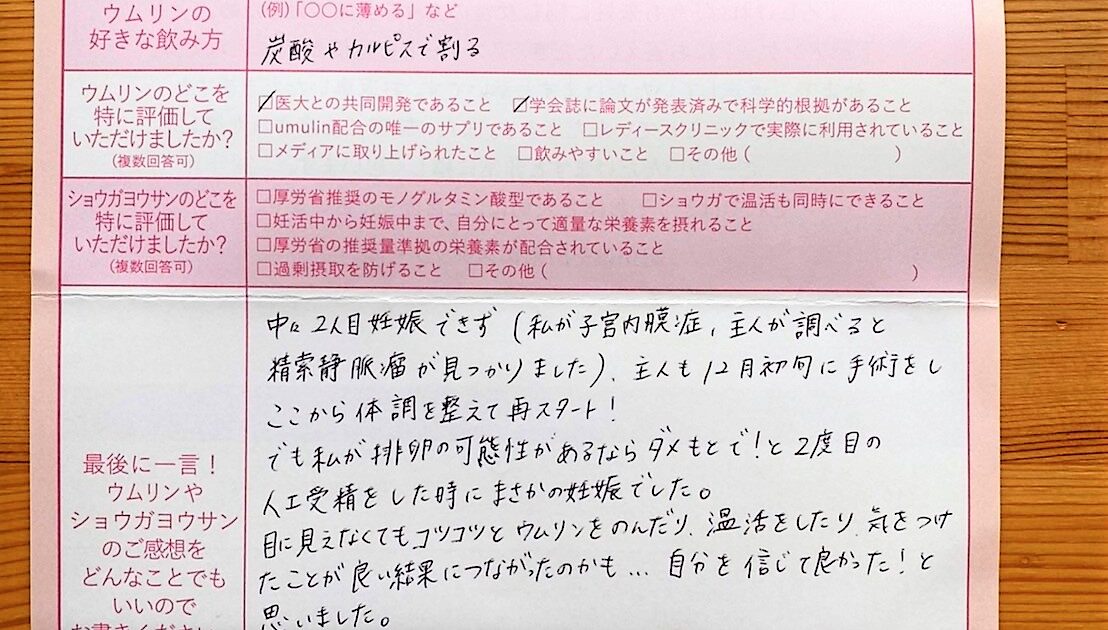 ウムリンの
好きな飲み方
(例)「〇〇に薄める」など
炭酸やカルピスで割る
ウムリンのどこを
特に評価して
いただけましたか?
(複数回答可)
☑医大との共同開発であること ☑学会誌に論文が発表済みで科学的根拠があること
□umulin配合の唯一のサプリであること □レディースクリニックで実際に利用されていること
□メディアに取り上げられたこと □飲みやすいこと □その他( )
ショウガヨウサンのどこを
特に評価して
いただけましたか?
(複数回答可)
□厚労省推奨のモノグルタミン酸型であること □ショウガで温活も同時にできること
□妊活中から妊娠中まで、自分にとって適量な栄養素を摂れること
□厚労省の推奨量準拠の栄養素が配合されていること
□過剰摂取を防げること □その他( )
最後に一言!
ウムリンや
ショウガヨウサン
のご感想を
どんなことでも
いいので
中々2人目妊娠できず(私が子宮内膜症、主人が調べると
精索静脈瘤が見つかりました)、主人も12月初旬に手術をし
ここから体調を整えて再スタート!
でも私が排卵の可能性があるならダメもとで!と2度目の
人工受精をした時にまさかの妊娠でした。
目に見えなくてもコツコツとウムリンをのんだり、温活をしたり、気をつけ
たことが良い結果につながったのかも…自分を信じて良かった!と
思いました。